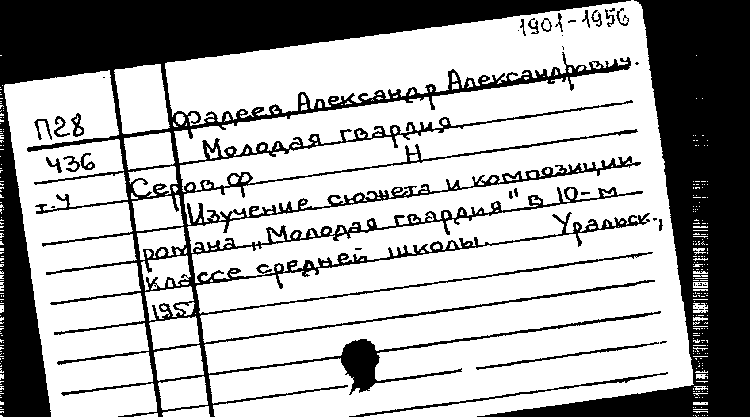 1901-1956
П28 Фадеев, Александр Александрович.
436 Молодая гвардия.
Н
т.4 Серов, Ф
Изучение сюжета и композиции
романа „Молодая гвардия" в 10-м
классе средней школы. Уральск.,
1957